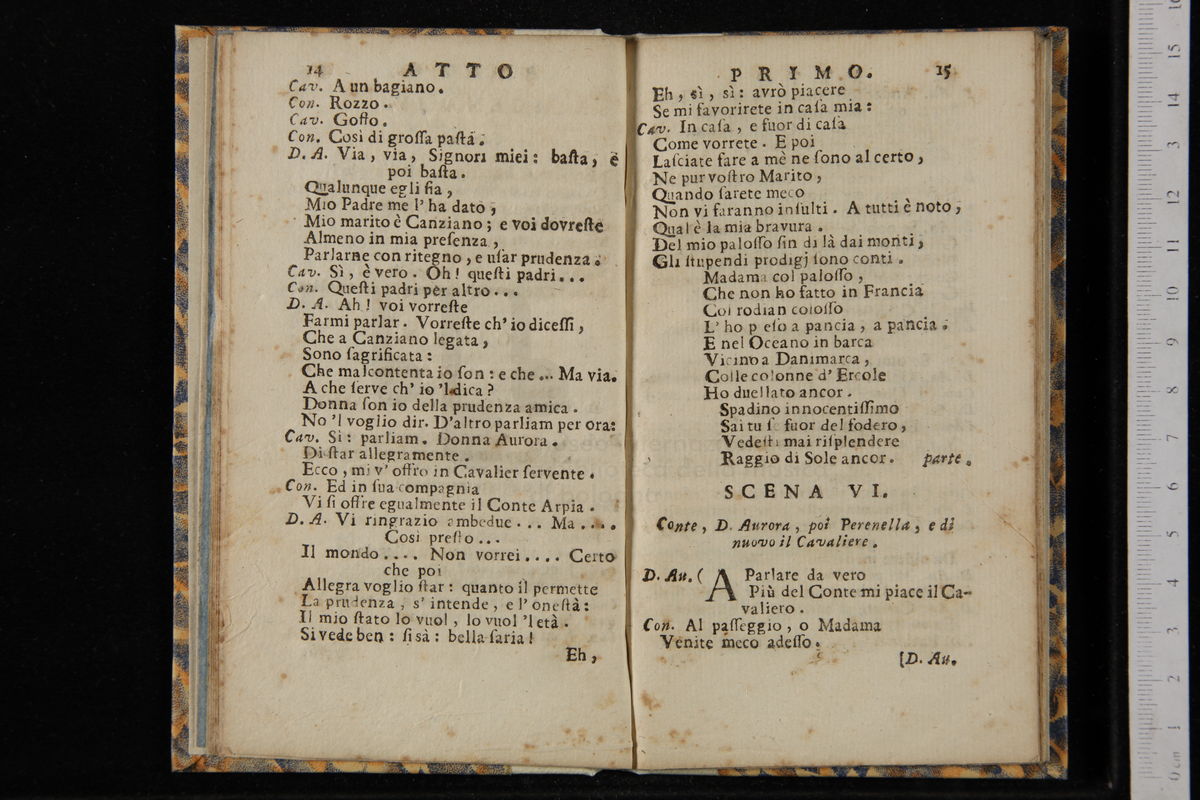 14 ATTO
Cav. A un bagiano.
Con. Rozzo.
Cav. Goffo.
Con. Così di groſſa paſta.
D. A. Via, via, Signori miei: baſta, e
poi baſta.
Qualunque egli ſia,
Mio Padre me l' ha dato,
Mio marito è Canziano; e voi dovreſte
Almeno in mia preſenza,
Parlarne con ritegno, e uſar prudenza.
Cav. Sì, è vero. Oh! queſti padri...
Con. Queſti padri per altro...
D. A. Ah! voi vorreſte
Farmi parlar. Vorreſte ch' io diceſſi,
Che a Canziano legata,
Sono ſagrificata:
Che malcontenta io ſon: e che... Ma via.
A che ſerve ch' io 'l dica?
Donna ſon io della prudenza amica.
No 'l voglio dir. D'altro parliam per ora:
Cav. Sì: parliam. Donna Aurora.
Di ſtar allegramente.
Ecco, mi v' offro in Cavalier ſervente.
Con. Ed in ſua compagnia
Vi ſi offre egualmente il Conte Arpia.
D. A. Vi ringrazio ambedue... Ma....
Così preſto...
Il mondo.... Non vorrei.... Certo
che poi
Allegra voglio ſtar: quanto il permette
La prudenza, s' intende, e l' oneſtà:
Il mio ſtato lo vuol, lo vuol 'l età.
Si vede ben: ſi sà: bella ſaria!
Eh,
PRIMO. 15
Eh, sì, sì: avrò piacere
Se mi favorirete in caſa mia:
Cav. In caſa, e fuor di caſa
Come vorrete. E poi
Laſciate fare a mè ne ſono al certo,
Ne pur voſtro Marito,
Quando ſarete meco
Non vi faranno inſulti. A tutti è noto,
Qual è la mia bravura.
Del mio paloſſo ſin di là dai monti,
Gli ſtupendi prodigj ſono conti.
Madama col paloſſo,
Che non ho fatto in Francia
Col rodian coloſſo
L' ho p eſo a pancia, a pancia.
E nel Oceano in barca
Vicino a Danimarca,
Colle colonne d' Ercole
Ho duellato ancor.
Spadino innocentiſſimo
Sai tu ſe fuor del fodero,
Vedeſti mai riſplendere
Raggio di Sole ancor. parte.
SCENA VI.
Conte, D. Aurora, poi Perenella, e di
nuovo il Cavaliere.
D. Au. ( A Parlare da vero
Più del Conte mi piace il Ca-
valiero.
Con. Al paſſeggio, o Madama
Venite meco adeſſo.
[D. Au.